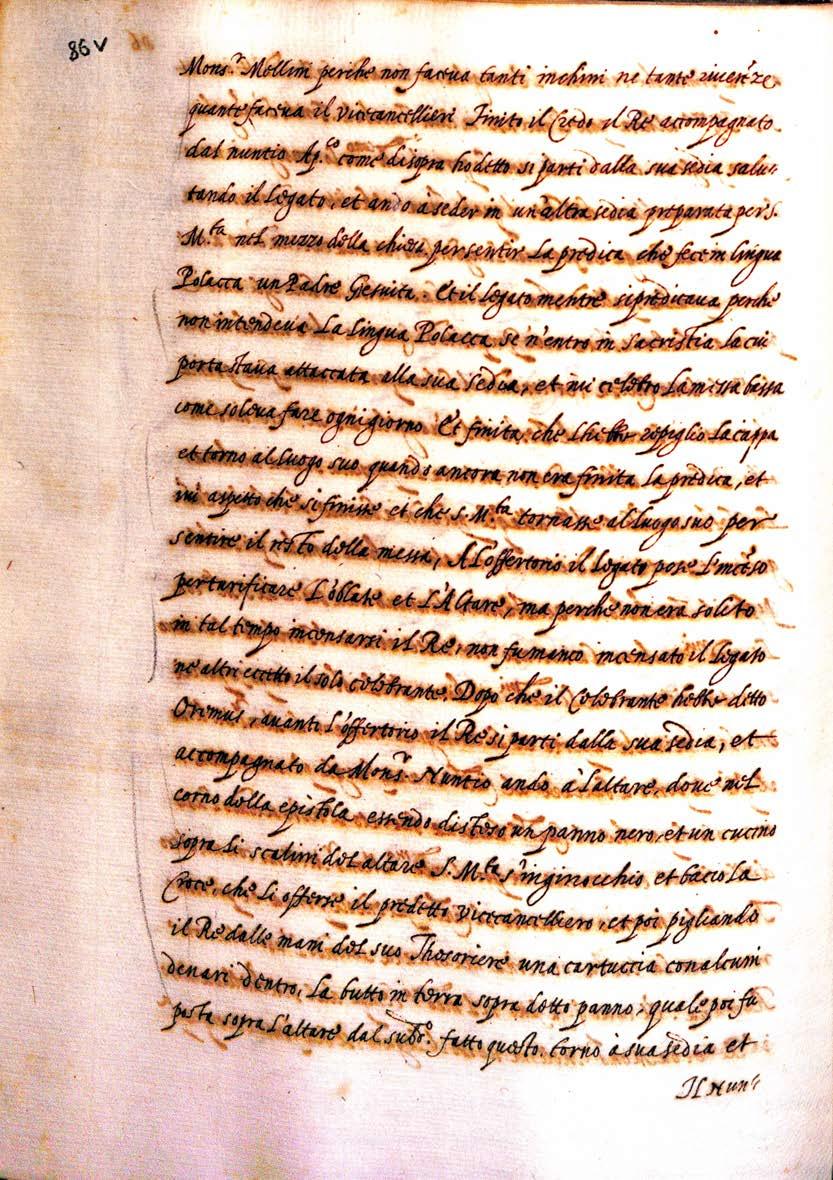 86 v
Mons.r Mellini perche non faceva tanti inchini ne tante riverẽze
quante faceva il vicecancellieri Finito il Credo il Re accompagnato
dal nuntio Ap.co come disopra ho detto si parti dalla sua sedia salu-
tando il legato, et andò à seder in un'altra sedia preparata per S.
M.ta nel mezzo della chiesa per sentir La predica che fece in lingua
Polacca un Padre Giesuita. Et il legato mentre si predicava perche
non intendeva La lingua Polacca se n'entro in sacristia la cui
porta stava attaccata alla sua sedia, et ivi celebro La messa bassa
come soleva fare ogni giorno Et finita, che L'hebbe repiglio La cappa
et torno al luogo suo quando ancora non era finita La predica, et
ivi aspetto che si finisse et che S. M.ta tornasse al luogo suo per
sentire il resto della messa, A L'offertorio il legato pose L'incẽso
per turificare L'oblate et L'Altare, ma perche non era solito
in tal tempo incensarsi il Re, non fu manco incensato il legato
ne altri eccetto il solo celebrante. Dopo che il Celebrante hebbe detto
Oremus, avanti L'offertorio il Re si parti dalla sua sedia, et
accompagnato da Mons.r Nuntio ando à L'altare, dove nel
corno della epistola essendo disteso un panno nero, et un cucino
sopra li scalini del altare S. M.ta s'inginocchio et bacio La
Croce, che Li offerse il predetto vicecancelliero, et poi pigliando
il Re dalle mani del suo Thesoriere una cartuccia con alcuni
denari dentro, La butto in terra sopra detto panno, quale poi fu
posta sopra L'altare dal subd.o fatto questo torno à sua sedia et
Il Nun-